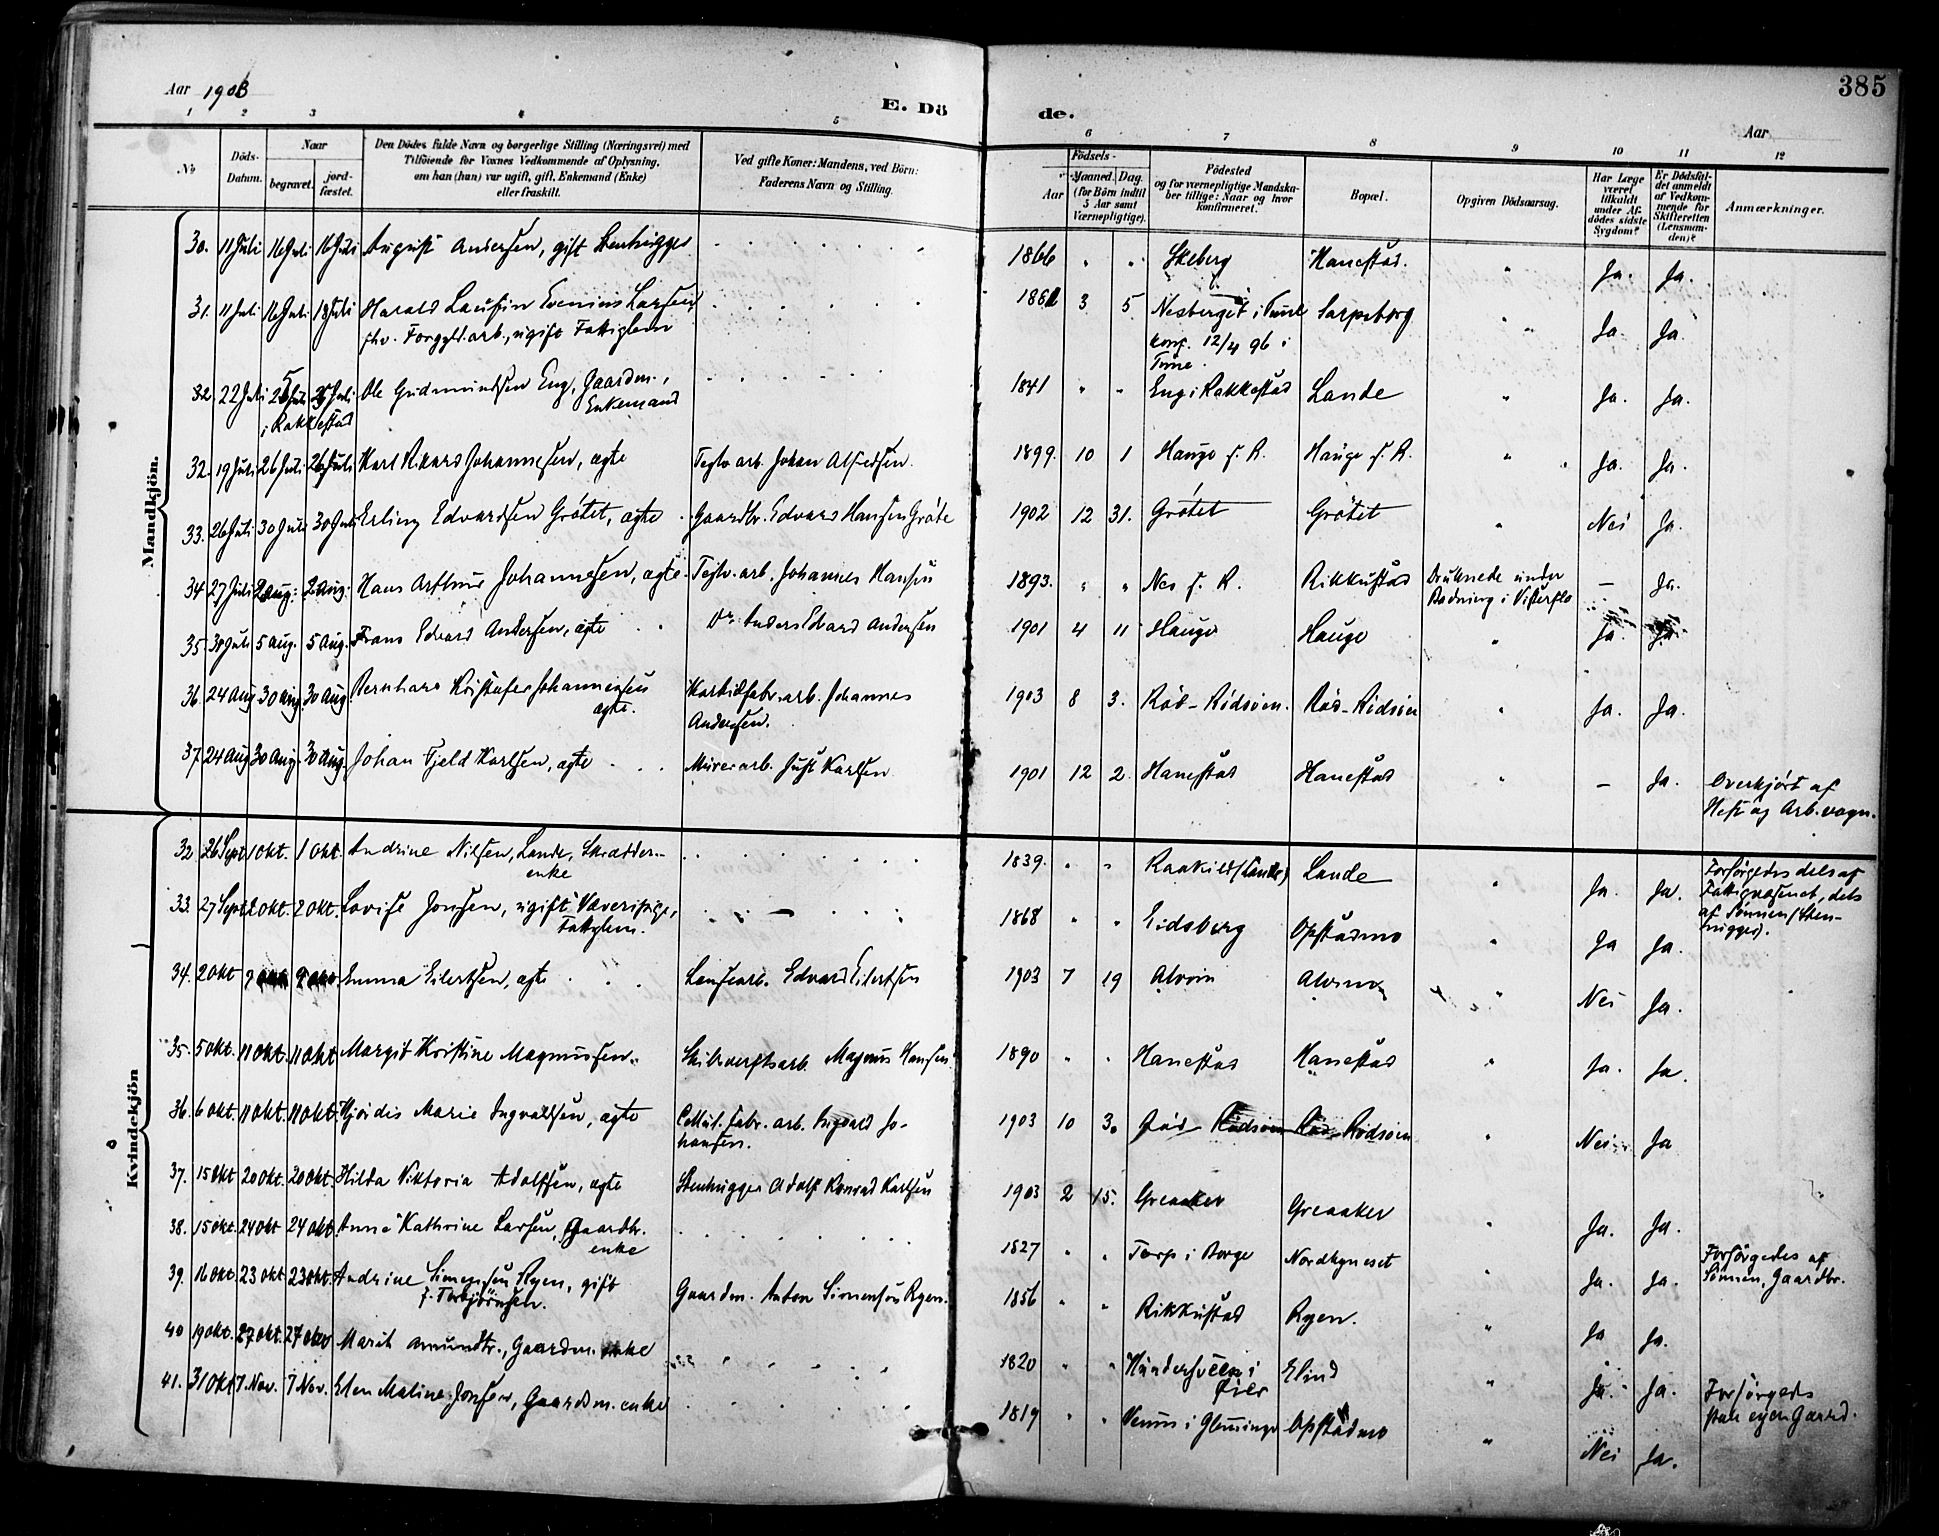 385
Aar 1903
E. Döde.
Aar
1 2 3 4 5 6 7 8 9 10 11 12
No
Döds-Datum.
Naar begravet. jordfæstet.
Den Dödes fulde Navn og borgerlige Stilling (Næringsvei) med
Tilföiende for Voxnes Vedkommende af Oplysning,
om han (hun) var ugift, gift, Enkemand (Enke)
eller fraskilt.
Ved gifte Koner: Mandens, ved Börn:
Faderens Navn og Stilling.
Födsels-
Aar Maaned. Dag.
(for Börn indtil
5 Aar samt
Værnepligtige).
Födested
og for værnepligtige Mandskaber tillige: Naar og hvor
konfirmeret.
Bopæl.
Opgiven Dödsaarsag.
Har Læge
været
tilkaldt
under Afdödes sidste
Sygdom?
Er Dödsfaldet anmeldt
af Vedkommende for
Skifteretten
(Lensmanden)?
Anmærkninger.
Mandkjön.
30. 11 Juli 16 Juli 16 Juli August Andersen, gift Stenhugger 1866 " " Skeberg Hanestad. " Ja. Ja.
31. 11 Juli 16 Juli 18 Juli Harald Laurin Evenius Larsen 3 5. Nesberget i Tune Sarpsborg " Ja. Ja.
fhv. Forgyld. arb., ugift Fattiglem konf. 12/4 96 i
Tune.
32 22 Juli Ole Gudmundsen Eng, Gaardm., 1841 " " Eng i Rakkestad Lande " Ja. Ja.
i Rakkestad Enkemand
32. 19 Juli 26 Juli 26 Juli Karl Rikard Johannesen, ægte Teglv. arb. Johan Alfredsen. 1899. 10 1 Hauge f. R. Hauge f. R. " Ja. Ja.
33. 26 Juli 30 Juli 30 Juli Erling Edvardsen Grötet, ægte Gaardbr. Edvard Hansen Gröte 1902 12 31. Grötet Grötet " Nei Ja.
34 27 Juli 2 Aug. 2 Aug. Hans Arthur Johannesen, ægte Teglv. arb. Johannes Hansen 1893. " " Nes f. R. Rikkustad Druknede under — Ja.
Badning i Visterflo
35 5 Aug. 5 Aug. Frans Edvard Andersen, ægte Do Anders Edvard Andersen 1901 4 11 Hauge Hauge " Ja Ja
36. 24 Aug 30 Aug. 30 Aug. Bernhard Kristofer Johannessen Karbidfabr. arb. Johannes 1903 8 3. Röd-Rödsöen. Röd-Rödsöen " Ja. Ja.
ægte. Andersen.
37. 24 Aug 30 Aug. 30 Aug. Johan Fjeld Karlsen, ægte Murerarb. Just Karlsen 1901 12 2. Hanestad Hanestad " — Ja. Overkjört af
Hest og Arb.vogn.
Kvindekjön
32 26 Sept 1 Okt. 1 Okt. Andrine Nilsen, Lande, Skrædder- 1839. " " Lande " Ja. Ja. Forsörgedes dels af
enke Fattigvæsenet, dels
af Sönnen (Sten-
hugger).
33. 27 Sept 2 Okt. 2 Okt. Lovise Jonsen, ugift Væverpige, 1868 " " Eidsberg Opstadmo " Ja Ja.
Fattiglem.
34. 2 Okt Emma Eilertsen, ægte Edvard Eilertsen 1903 7 19 Alvim Alvim " Nei Ja.
35. 5 Okt. 11 Okt. 11 Okt Margit Kristine Magnussen. Skibsverftsarb. Magnus Hansen 1890 " " Hanestad Hanestad " Ja. Ja.
36. 6 Okt. 11 Okt. 11 Okt. Hjördis Marie Ingvaldsen, ægte Cellul. fabr. arb. Ingvald Jo- 1903 10 3. Röd-Rödsöen Röd-Rödsöen " Nei Ja
hansen.
37. 15 Okt 20 Okt. 20 Okt. Hilda Viktoria Adolfsen, ægte Stenhugger Adolf Konrad Karlsen 1903 2 15. Greaaker Greaaker " Ja. Ja.
38. 15 Okt. 24 Okt 24 Okt. Anna Kathrine Larsen, Gaardbr. 1827 " " Torp i Borge Nordkyneset " Ja. Ja. Forsörgedes af
enke Sönnen, Gaardbr.
39. 16 Okt 23 Okt 23 Okt. Andrine Simensen Ryen, gift Gaardm. Anton Simensen Ryen. 1856 " " Rikkustad Ryen. " Ja Ja.
f. Torbjörnsen.
40 19 Okt. 27 Okt. 27 Okt Marit Amundtr., Gaardm. enke 1820 " " i Elind " Ja. Ja. Forsörgeds
Öier paa egen Gaard.
41. 31 Okt 7. Nov. 7 Nov. Elen Maline Jonsen, Gaardm. enke 1819 " " Veum i Glemminge Opstadmo " Nei Ja.